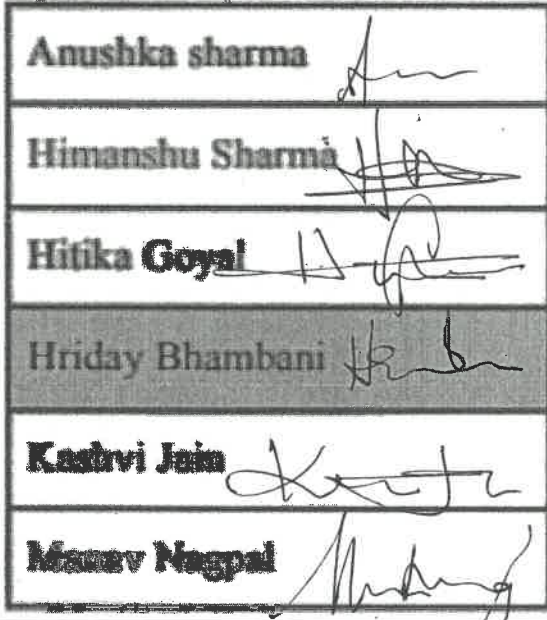 Anushka sharma
Himanshu Sharma
Hitika Goyal
Hriday Bhambani
Kashvi Jain
Nagpal